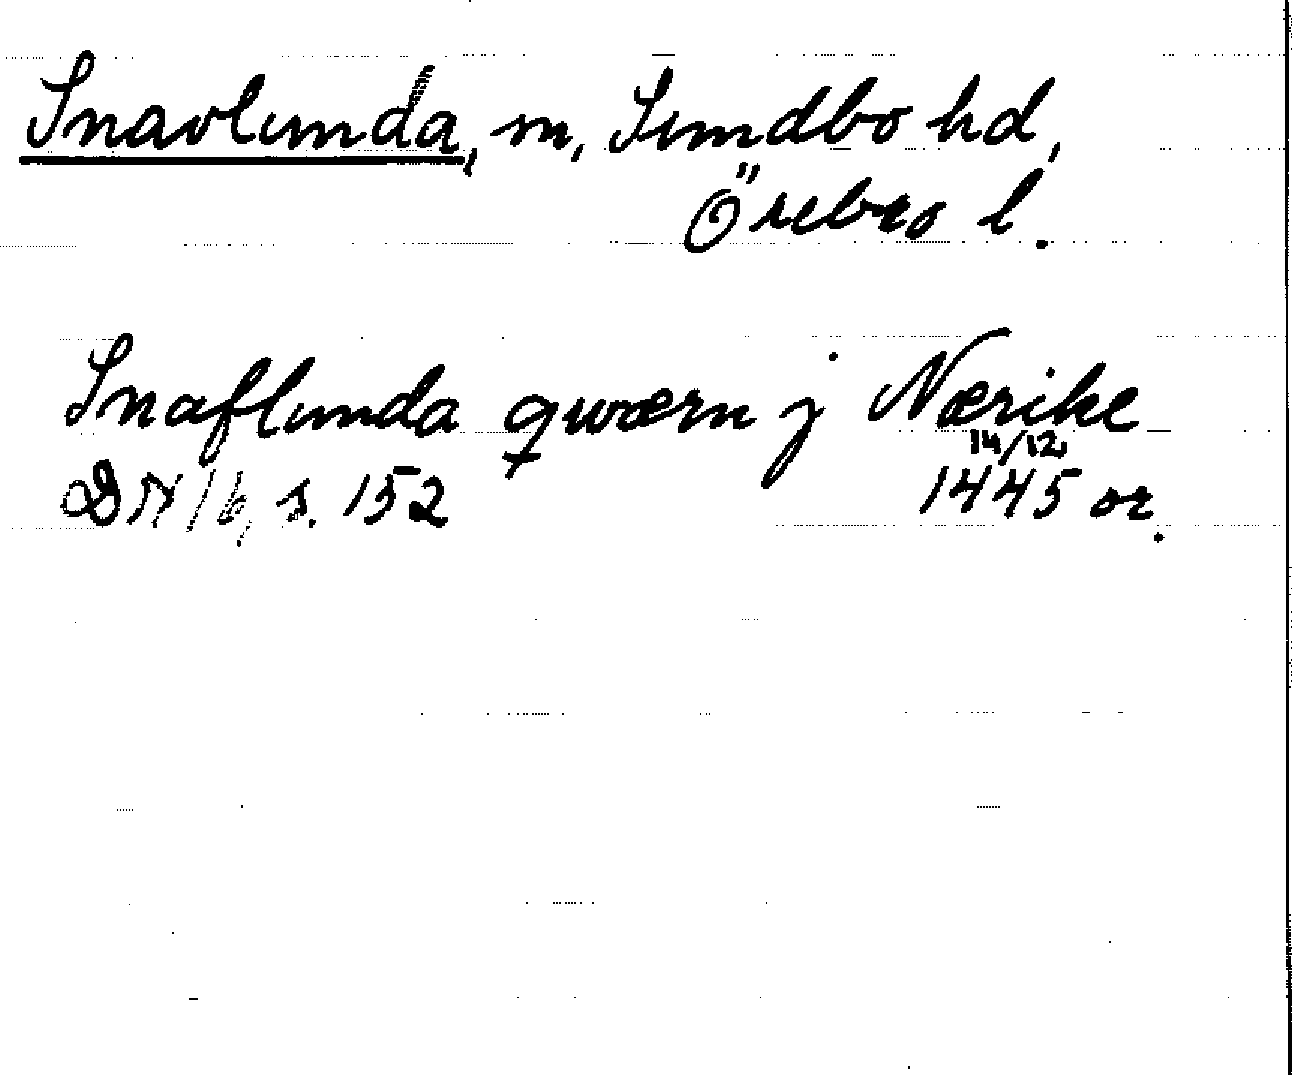 Snavlunda, sn, Sundbo hd,
Örebro l.
Snaflunda qwærn j Nærike
14/12
DN 16, s. 152 1445 or.